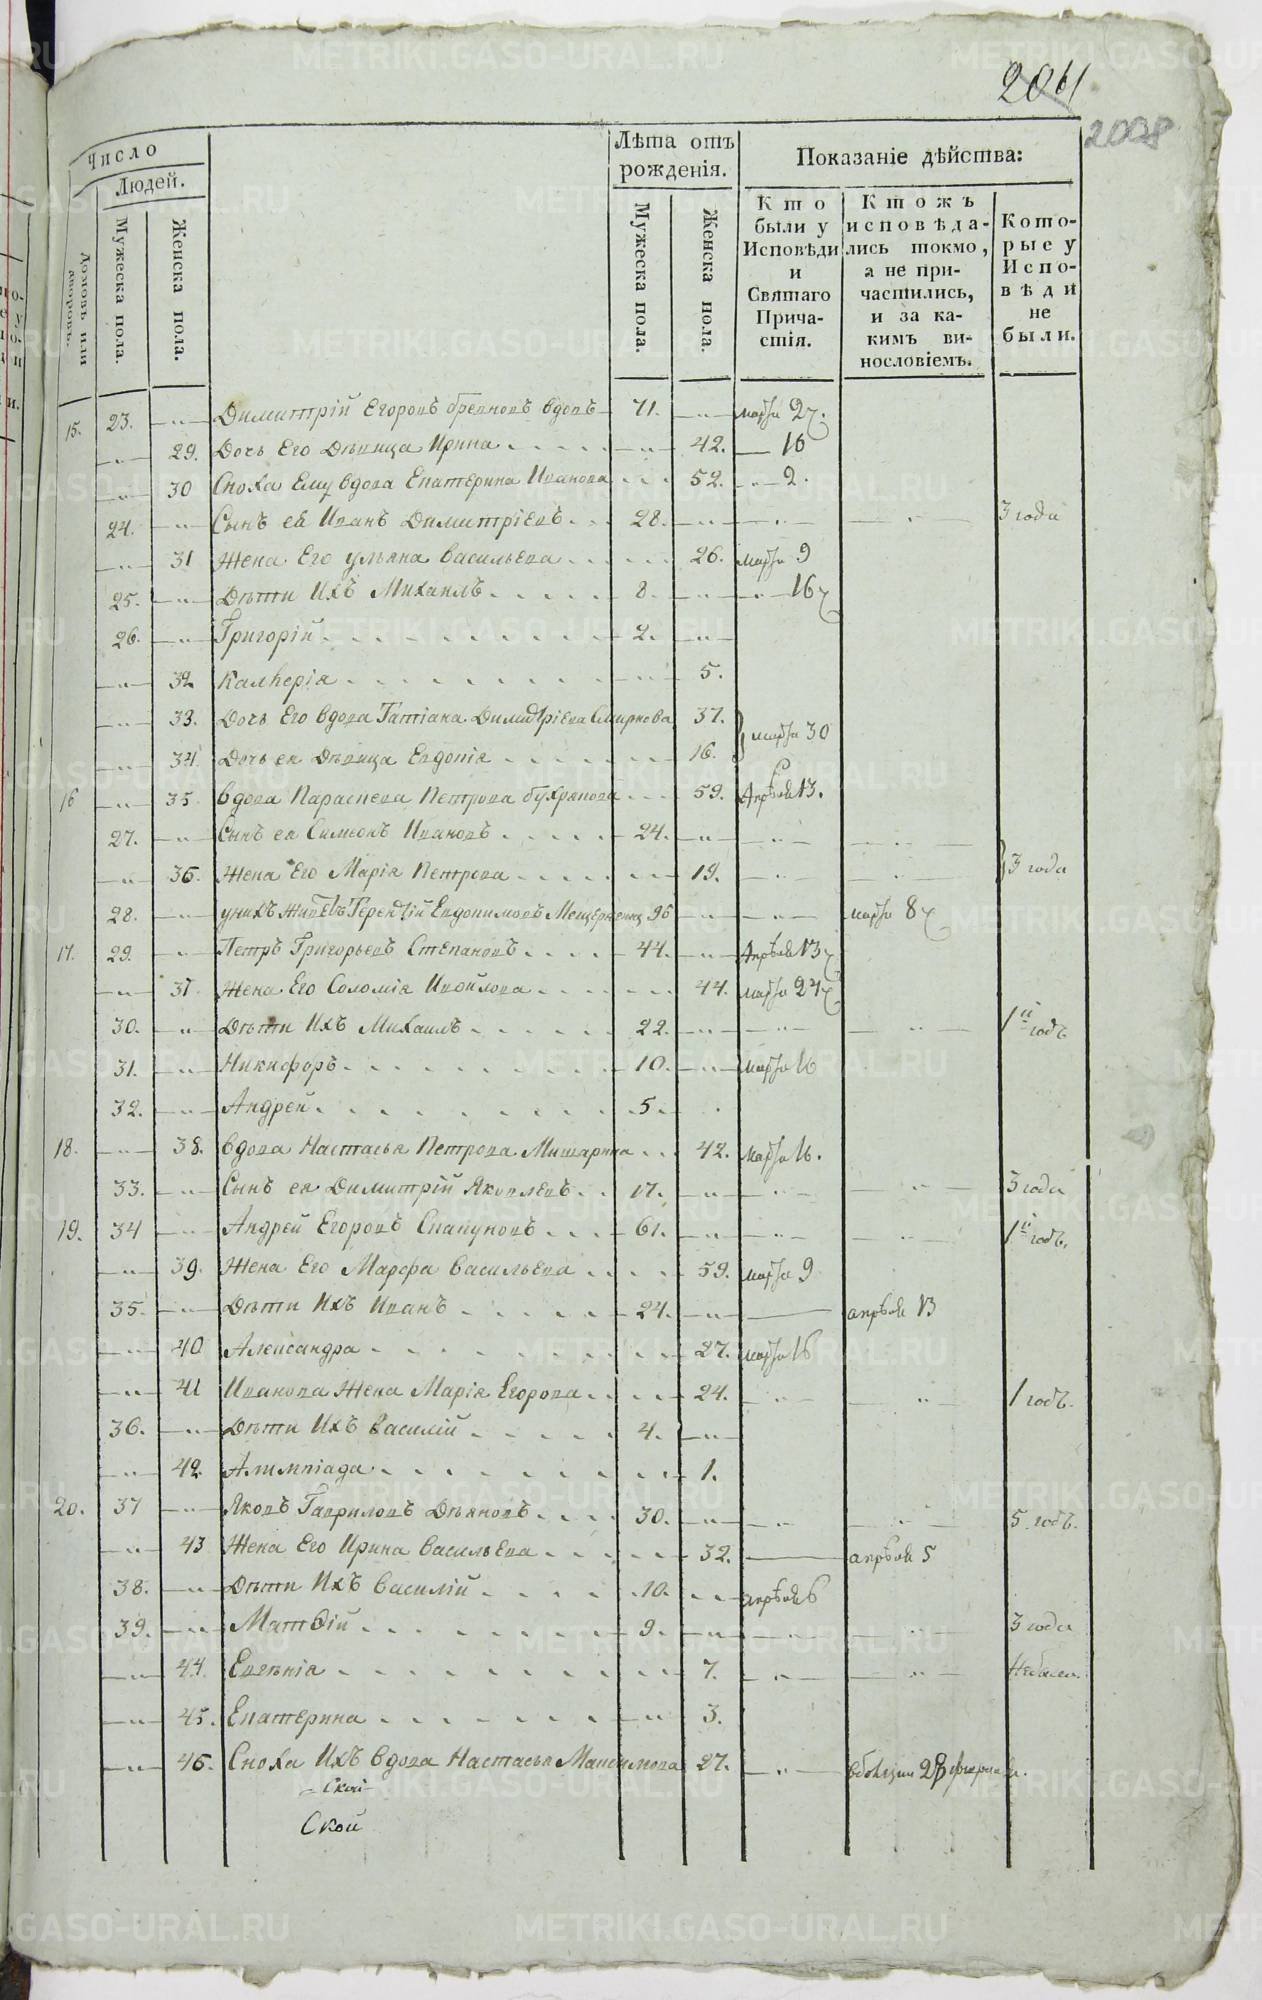 2061
2008
Число
Людей.
Домовъ или дворовъ.
Мужеска пола.
Женска пола.
Лѣта отъ рожденія.
Мужеска пола.
Женска пола.
Показаніе дѣйства:
Кто были у Исповѣди и Святаго Причастія.
Ктожъ исповѣдались токмо, а не причастились, и за какимъ винословіемъ.
Которые у Исповѣди не были.
15. 23. Димитрій Егоровъ вдовъ 71. марта 27.
29. Дочь Его Дѣвица Ирина 42. 16
30 Сноха Ему вдова Екатерина Иванова 52. 2.
24. Сынъ ея Иванъ Димитріевъ 28. 3 года
31 Жена Его Ульяна Васильева 26. марта 9
25. Дѣти Ихъ Михаилъ 8. 16
26. Григорій 2.
32 Калерія 5.
33. Дочь Его вдова Татіана Димитріева Смирнова 37. марта 30
34. Дочь ея Дѣвица Евдокія 16.
16 35. вдова Параскева Петрова 59. Апрѣля 13.
27. Сынъ ея Симеонъ Ивановъ 24. 3 года
36. Жена Его Марія Петрова 19.
28. у нихъ живетъ Терентій Евдокимовъ 96 марта 8
17. 29. Петръ Григорьевъ Степановъ 44. Апрѣля 13
37 Жена Его Соломія 44. марта 27
30. Дѣти Ихъ Михаилъ 22. 1й годъ
31. Никифоръ 10. марта 16
32. Андрей 5.
18. 38. вдова Настасья Петрова Мишарина 42. марта 16.
33. Сынъ ея Димитрій Яковлевъ 17. 3 года
19. 34 Андрей Егоровъ 61. 1й годъ.
39. Жена Его Марфа Васильева 59. марта 9
35. Дѣти Ихъ Иванъ 24. апрѣля 13
40 Александра 27. марта 16
41 Иванова Жена Марія Егорова 24. 1 годъ.
36. Дѣти Ихъ Василій 4.
42. Алимпіада 1.
20. 37 Яковъ Гавриловъ 30. 5 годъ.
43 Жена Его Ирина Васильева 32. апрѣля 5
38. Дѣти Ихъ Василій 10. апрѣля 6
39. Матѳій 9. 3 года
44. Евгѣнія 7.
45. Екатерина 3.
46. Сноха Ихъ вдова Настасья Максимова 27. 28 февраля.
Ской
Ской
METRIKI.GASO-URAL.RU